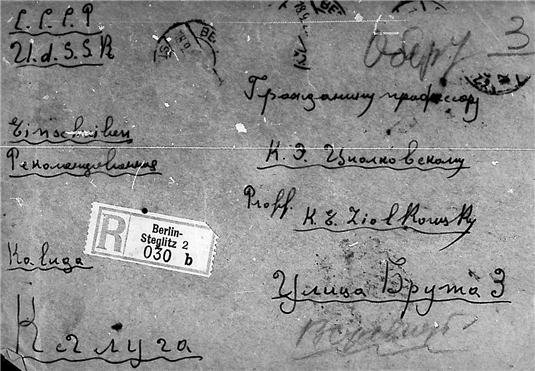 С.С.С.Р
U.d.S.S.R
3
Гражданину профессору
Einschreiben
К. Э. Циолковскому
Proff. K. E. Ziolkowsky
R
Berlin-
Steglitz 2
030 b
Kaluga
Улица Брута 3
Калуга